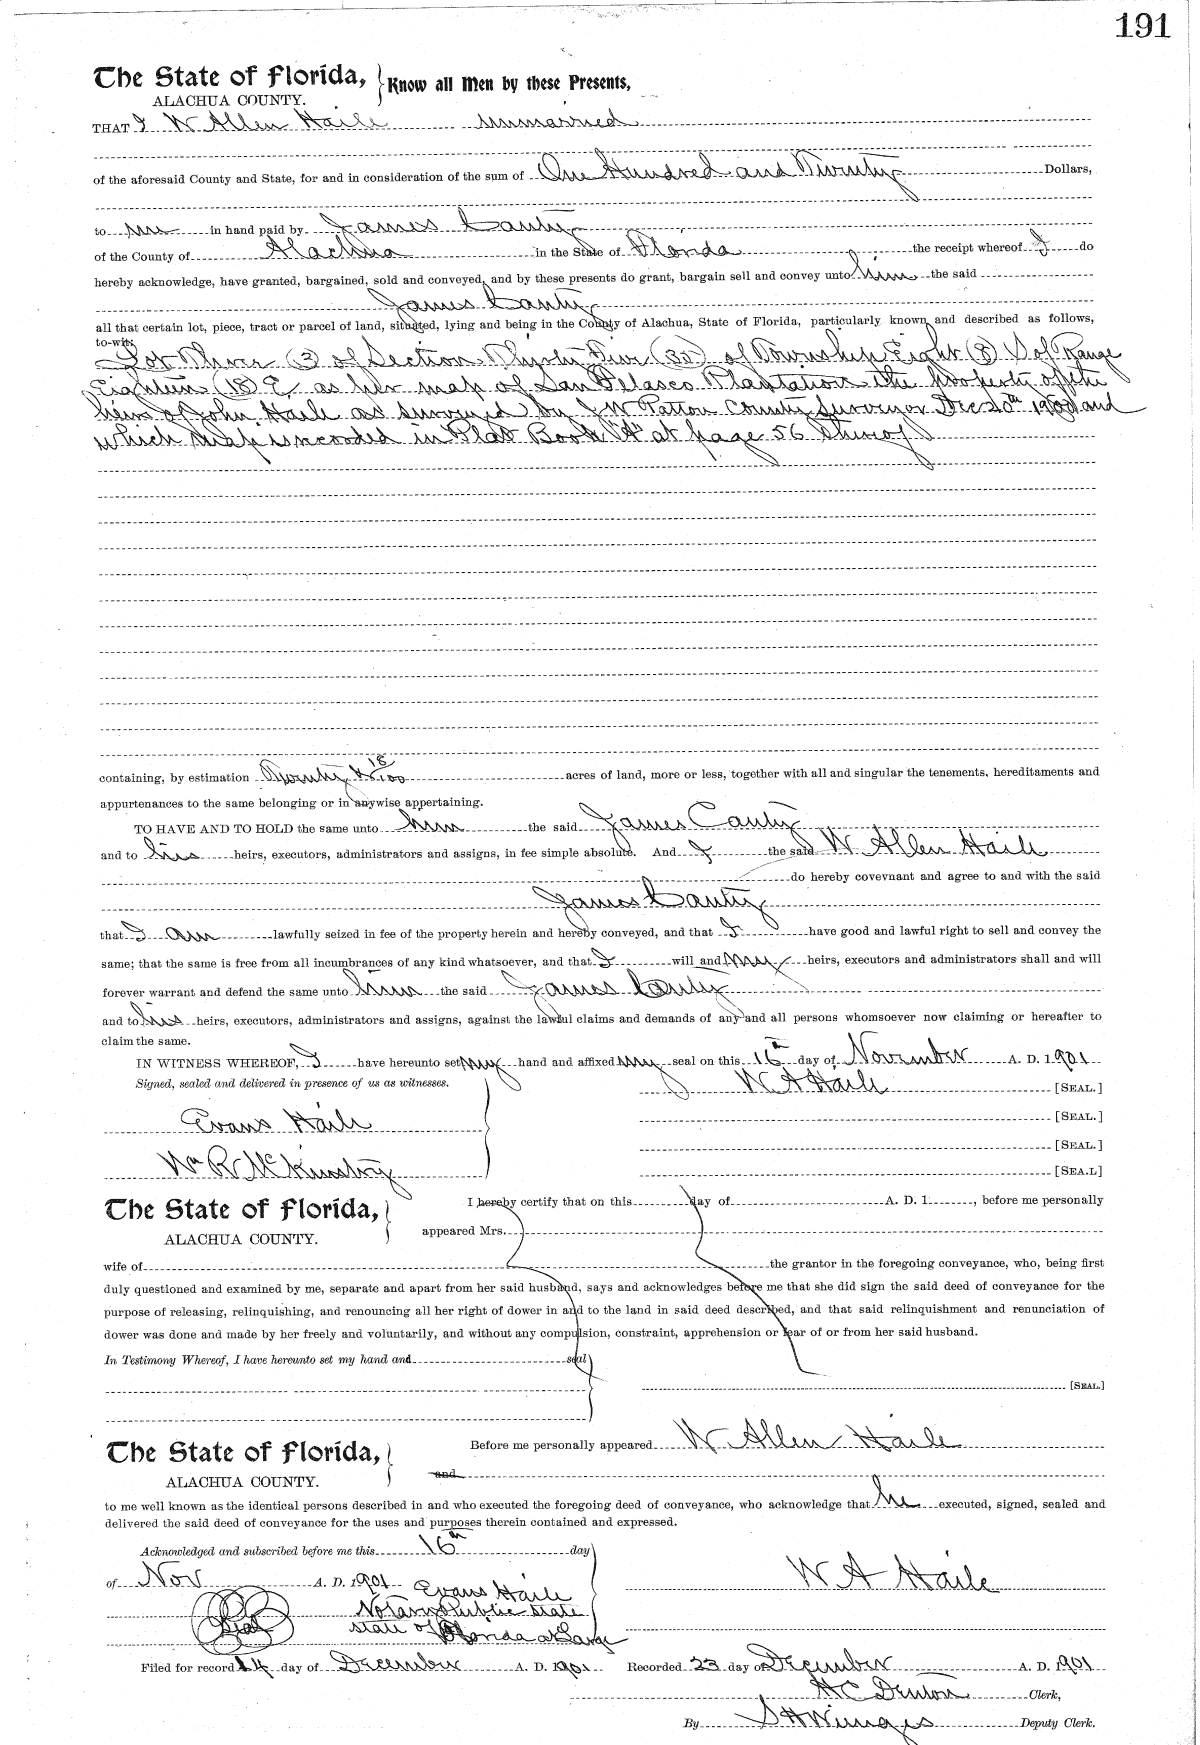 191
The State of Florida, Know all Men by these Presents,
ALACHUA COUNTY.
THAT I W Allen Haile unmarried
of the aforesaid County and State, for and in consideration of the sum of One Hundred and Twenty Dollars,
to me in hand paid by James Canty
of the County of Alachua in the State of Florida the receipt whereof I do
hereby acknowledge, have granted, bargained, sold and conveyed, and by these presents do grant, bargain sell and convey unto him the said
James Canty
all that certain lot, piece, tract or parcel of land, situated, lying and being in the County of Alachua, State of Florida, particularly known and described as follows,
to-wit:
Lot Three (3) of Section Thirty Five (35) of Township Eight (8) S of Range
Eighteen (18) E, as per map of San Felasco Plantation the property of the
heirs of John Haile as surveyed by J W Patton County Surveyor Dec 20th 1900 and
which map is recorded in Plat Book "A" at page 56 thereof
containing, by estimation Twenty & 18/100 acres of land, more or less, together with all and singular the tenements, hereditaments and
appurtenances to the same belonging or in anywise appertaining.
TO HAVE AND TO HOLD the same unto him the said James Canty
and to his heirs, executors, administrators and assigns, in fee simple absolute. And I the said W Allen Haile
do hereby covevnant and agree to and with the said
James Canty
that I am lawfully seized in fee of the property herein and hereby conveyed, and that I have good and lawful right to sell and convey the
same; that the same is free from all incumbrances of any kind whatsoever, and that I will and my heirs, executors and administrators shall and will
forever warrant and defend the same unto him the said James Canty
and to his heirs, executors, administrators and assigns, against the lawful claims and demands of any and all persons whomsoever now claiming or hereafter to
claim the same.
IN WITNESS WHEREOF, I have hereunto set my hand and affixed my seal on this 16th day of November A. D. 1901
Signed, sealed and delivered in presence of us as witnesses. W A Haile [SEAL.]
Evans Haile [SEAL.]
[SEAL.]
Wm R McKinstry [SEA.L]
The State of Florida, I hereby certify that on this day of A. D. 1 , before me personally
ALACHUA COUNTY. appeared Mrs.
wife of the grantor in the foregoing conveyance, who, being first
duly questioned and examined by me, separate and apart from her said husband, says and acknowledges before me that she did sign the said deed of conveyance for the
purpose of releasing, relinquishing, and renouncing all her right of dower in and to the land in said deed described, and that said relinquishment and renunciation of
dower was done and made by her freely and voluntarily, and without any compulsion, constraint, apprehension or fear of or from her said husband.
In Testimony Whereof, I have hereunto set my hand and seal
[SEAL.]
The State of Florida, Before me personally appeared W Allen Haile
ALACHUA COUNTY. and
to me well known as the identical persons described in and who executed the foregoing deed of conveyance, who acknowledge that he executed, signed, sealed and
delivered the said deed of conveyance for the uses and purposes therein contained and expressed.
Acknowledged and subscribed before me this 16th day
of Nov A. D. 1901 W A Haile
Evans Haile
Notary Public State
Seal state of Florida at Large
Filed for record 14 day of December A. D. 1901 Recorded 23 day of December A. D. 1901
H C Denton Clerk,
By S H Wienges Deputy Clerk.